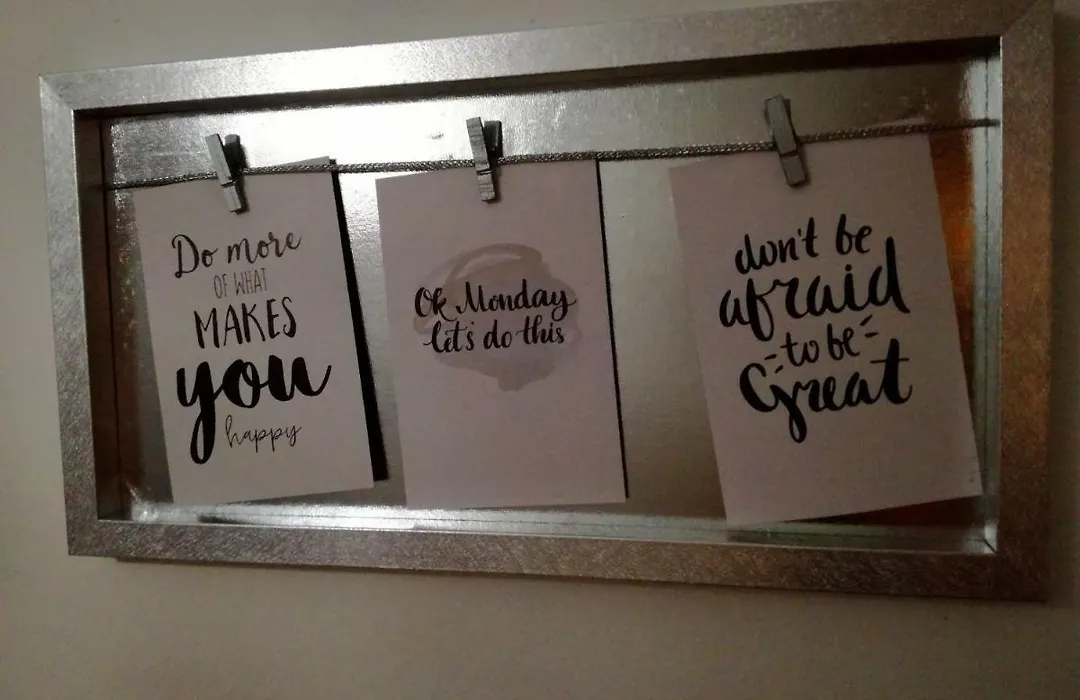 Do more
OF WHAT
MAKES
you
happy
Ok Monday
let's do this
don't be
afraid
to be
Great